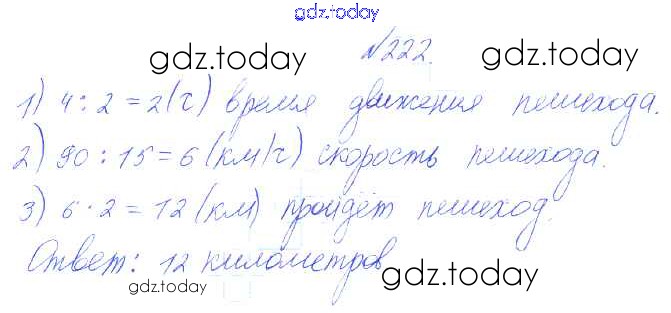 gdz.today
№222.
gdz.today gdz.today
1) 4 : 2 = 2 (ч) время движения пешехода.
2) 90 : 15 = 6 (км/ч) скорость пешехода.
3) 6 · 2 = 12 (км) пройдёт пешеход.
Ответ: 12 километров
gdz.today
gdz.today